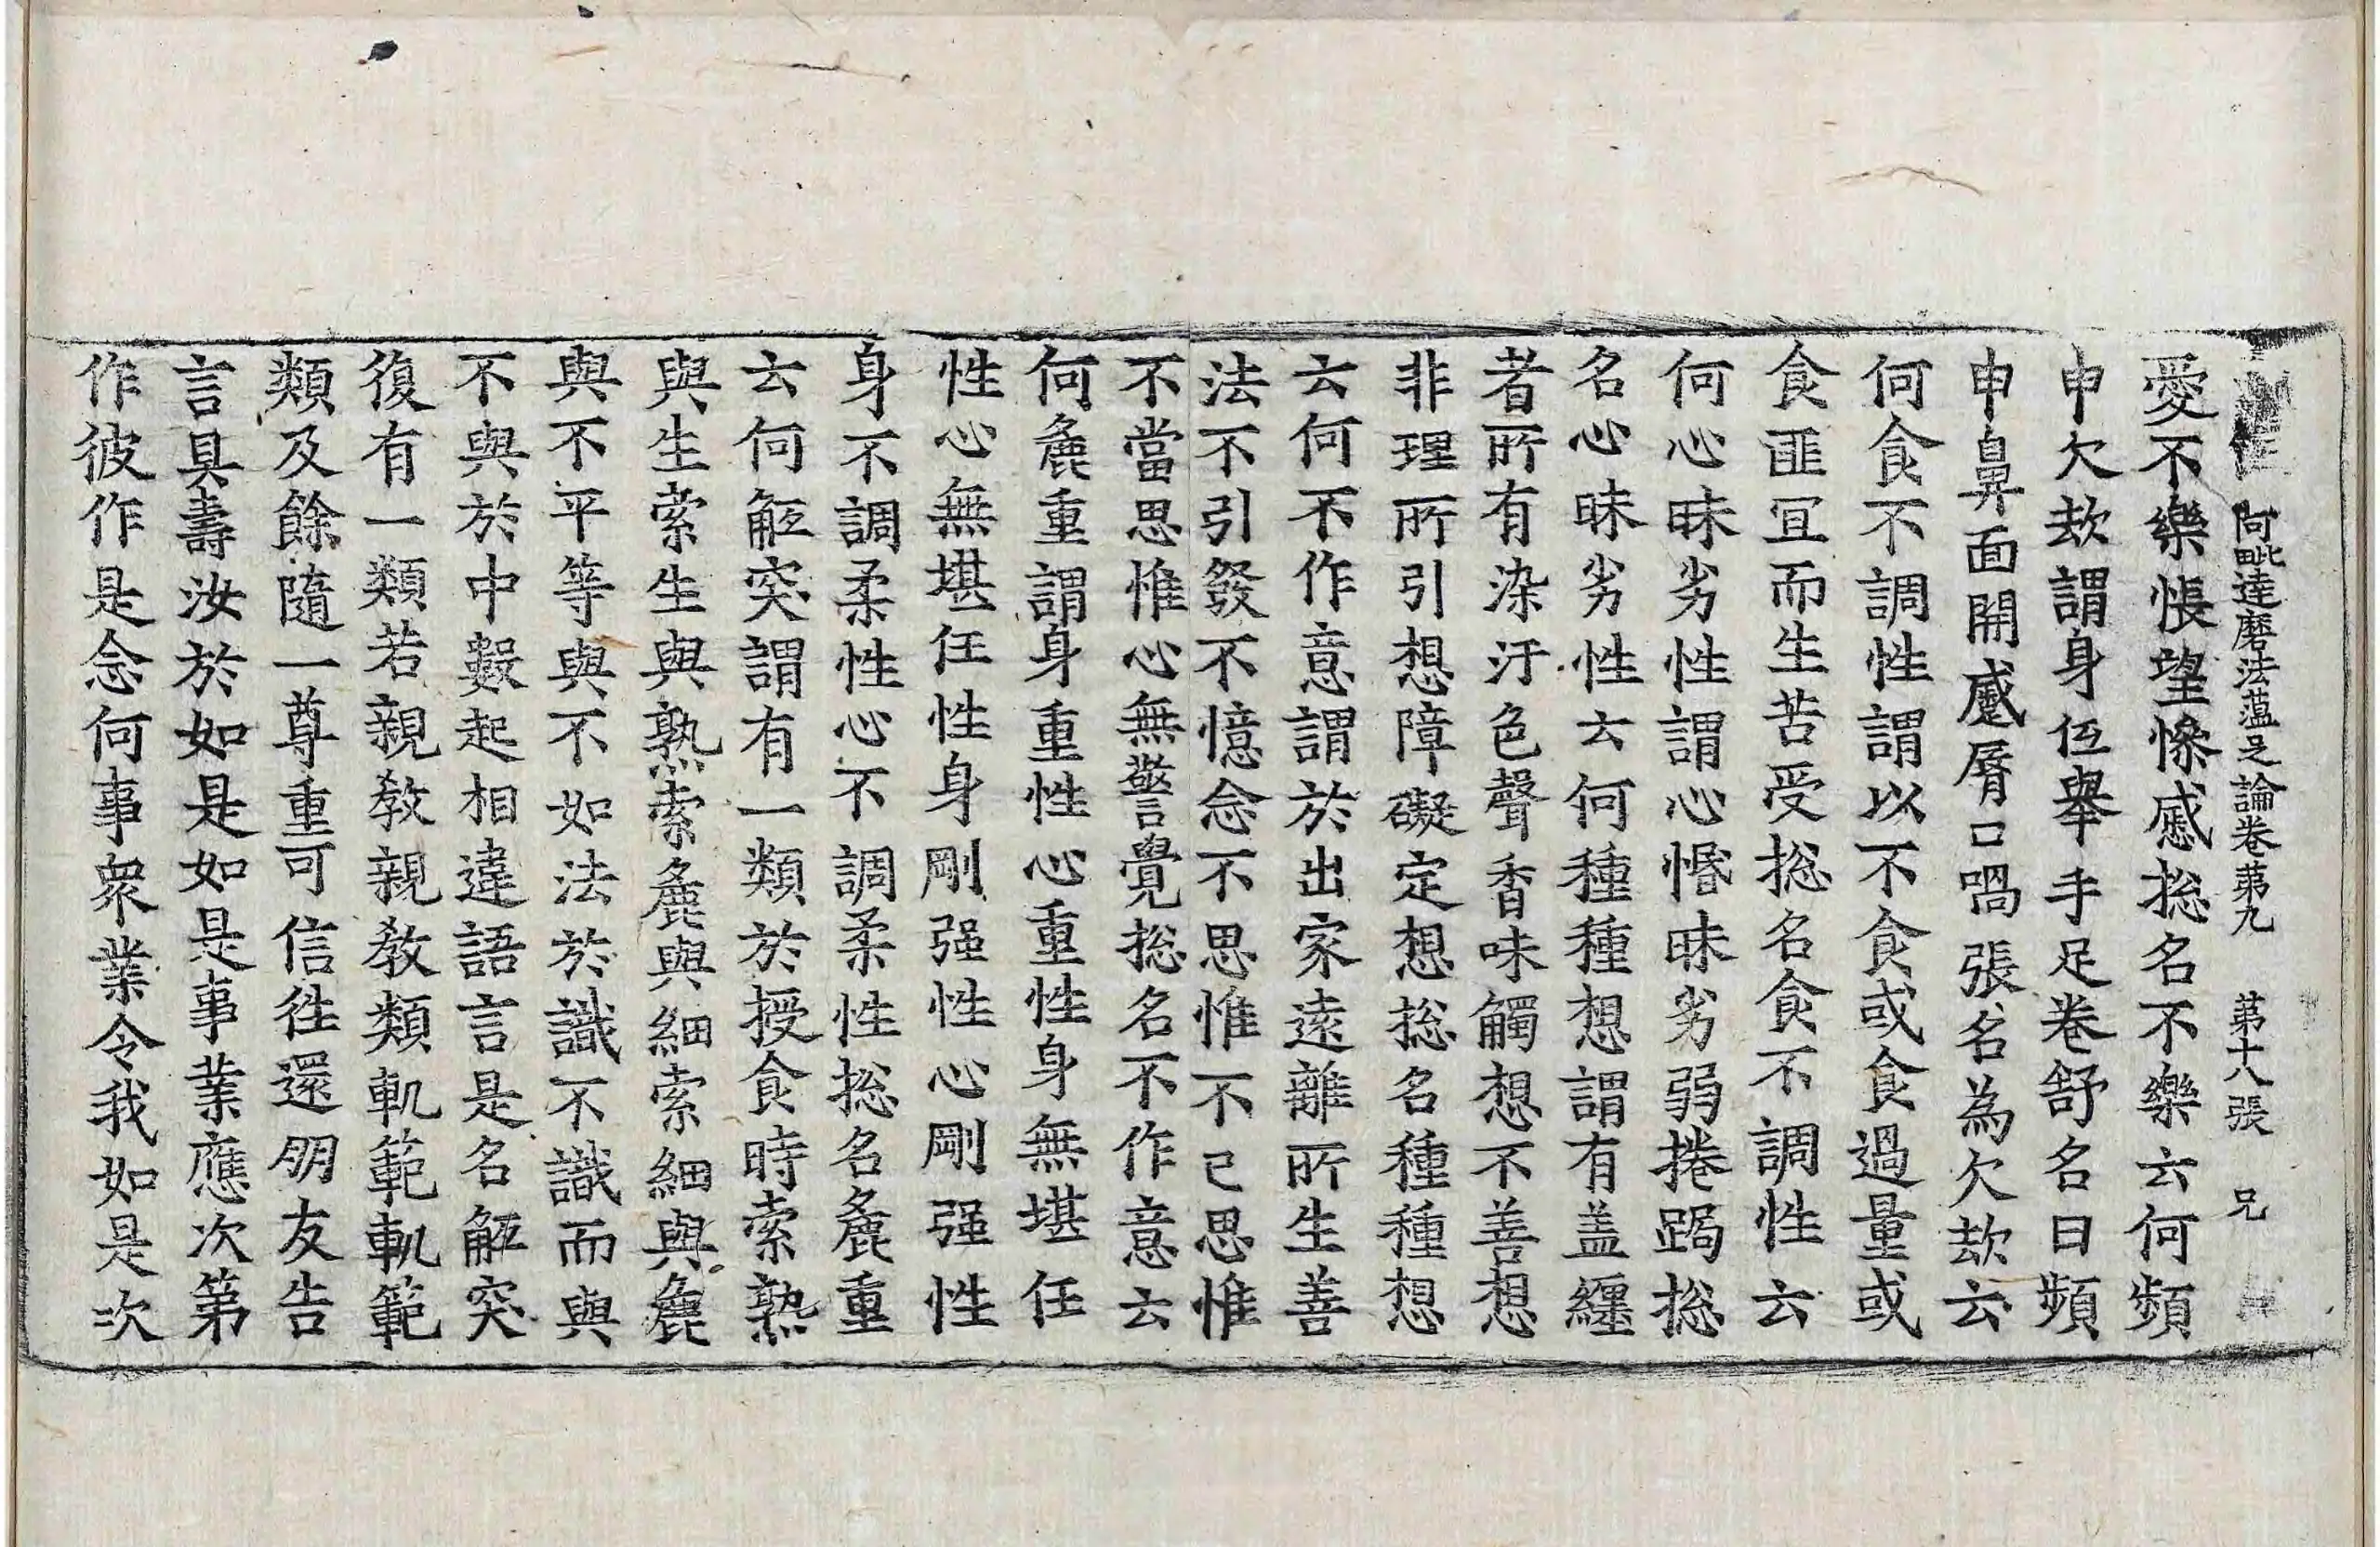 阿毗達磨法蕰足論卷苐九　苐十八張　兄
愛不樂悵望慘慼捴名不樂云何頻
申欠㰦謂身伍舉手足卷舒名曰頻
申鼻面開蹙脣口喎張名為欠㰦云
何食不調性謂以不食或食過量或
食匪冝而生苦受捴名食不調性云
何心昧劣性謂心惛昧劣弱捲跼捴
名心昧劣性云何種種想謂有盖纏
者所有染汙色聲香味觸想不善想
非理所引想障礙定想捴名種種想
云何不作意謂於出家遠離所生善
法不引發不憶念不思惟不已思惟
不當思惟心無警覺捴名不作意云
何麁重謂身重性心重性身無堪任
性心無堪任性身剛强性心剛强性
身不調柔性心不調柔性捴名麁重
云何觝突謂有一類於授食時索熟
與生索生與熟索麁與細索細與麁
與不平等與不如法於識不識而與
不與於中數起相違語言是名觝突
復有一類若親教親教類軌範軌範
類及餘隨一尊重可信往還朋友告
言具壽汝於如是如是事業應次第
作彼作是念何事衆業令我如是次